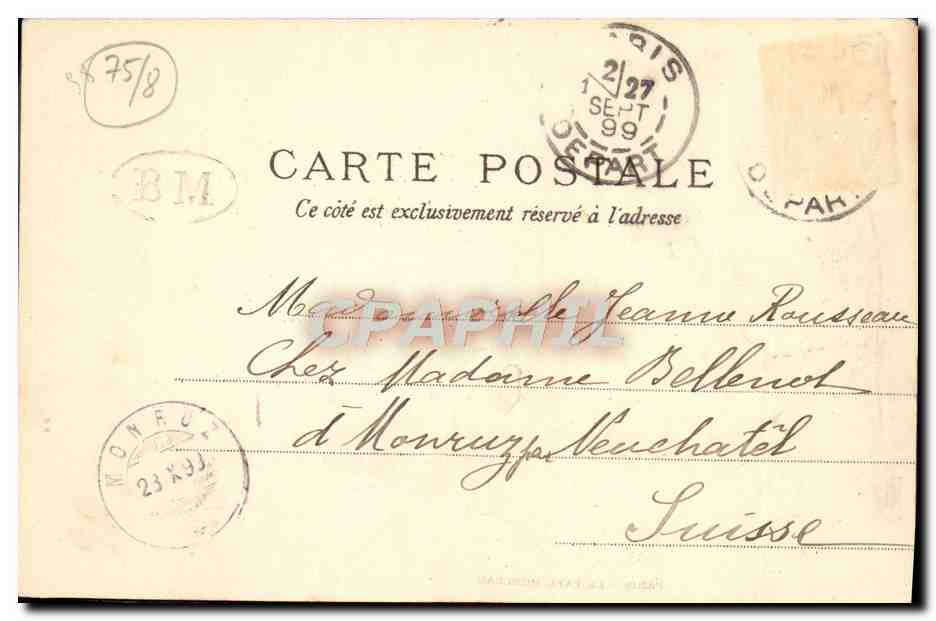 75/8
PARIS
27
SEPT
99
DEPART
DEPART
BM
CARTE POSTALE
Ce côté est exclusivement réservé à l'adresse
CPAPHIL
Mademoiselle Jeanne Rousseau
Chez Madame Bellenot
à Monruz par Neuchatêl
Suisse
MONRUZ
PARIS - LE PARC MONCEAU